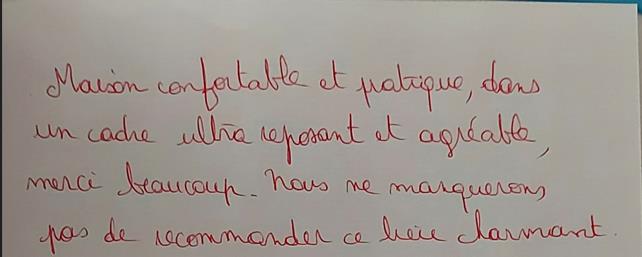 Maison confortable et pratique, dans
un cadre ultra reposant et agréable,
merci beaucoup. Nous ne manquerons
pas de recommander ce lieu charmant.